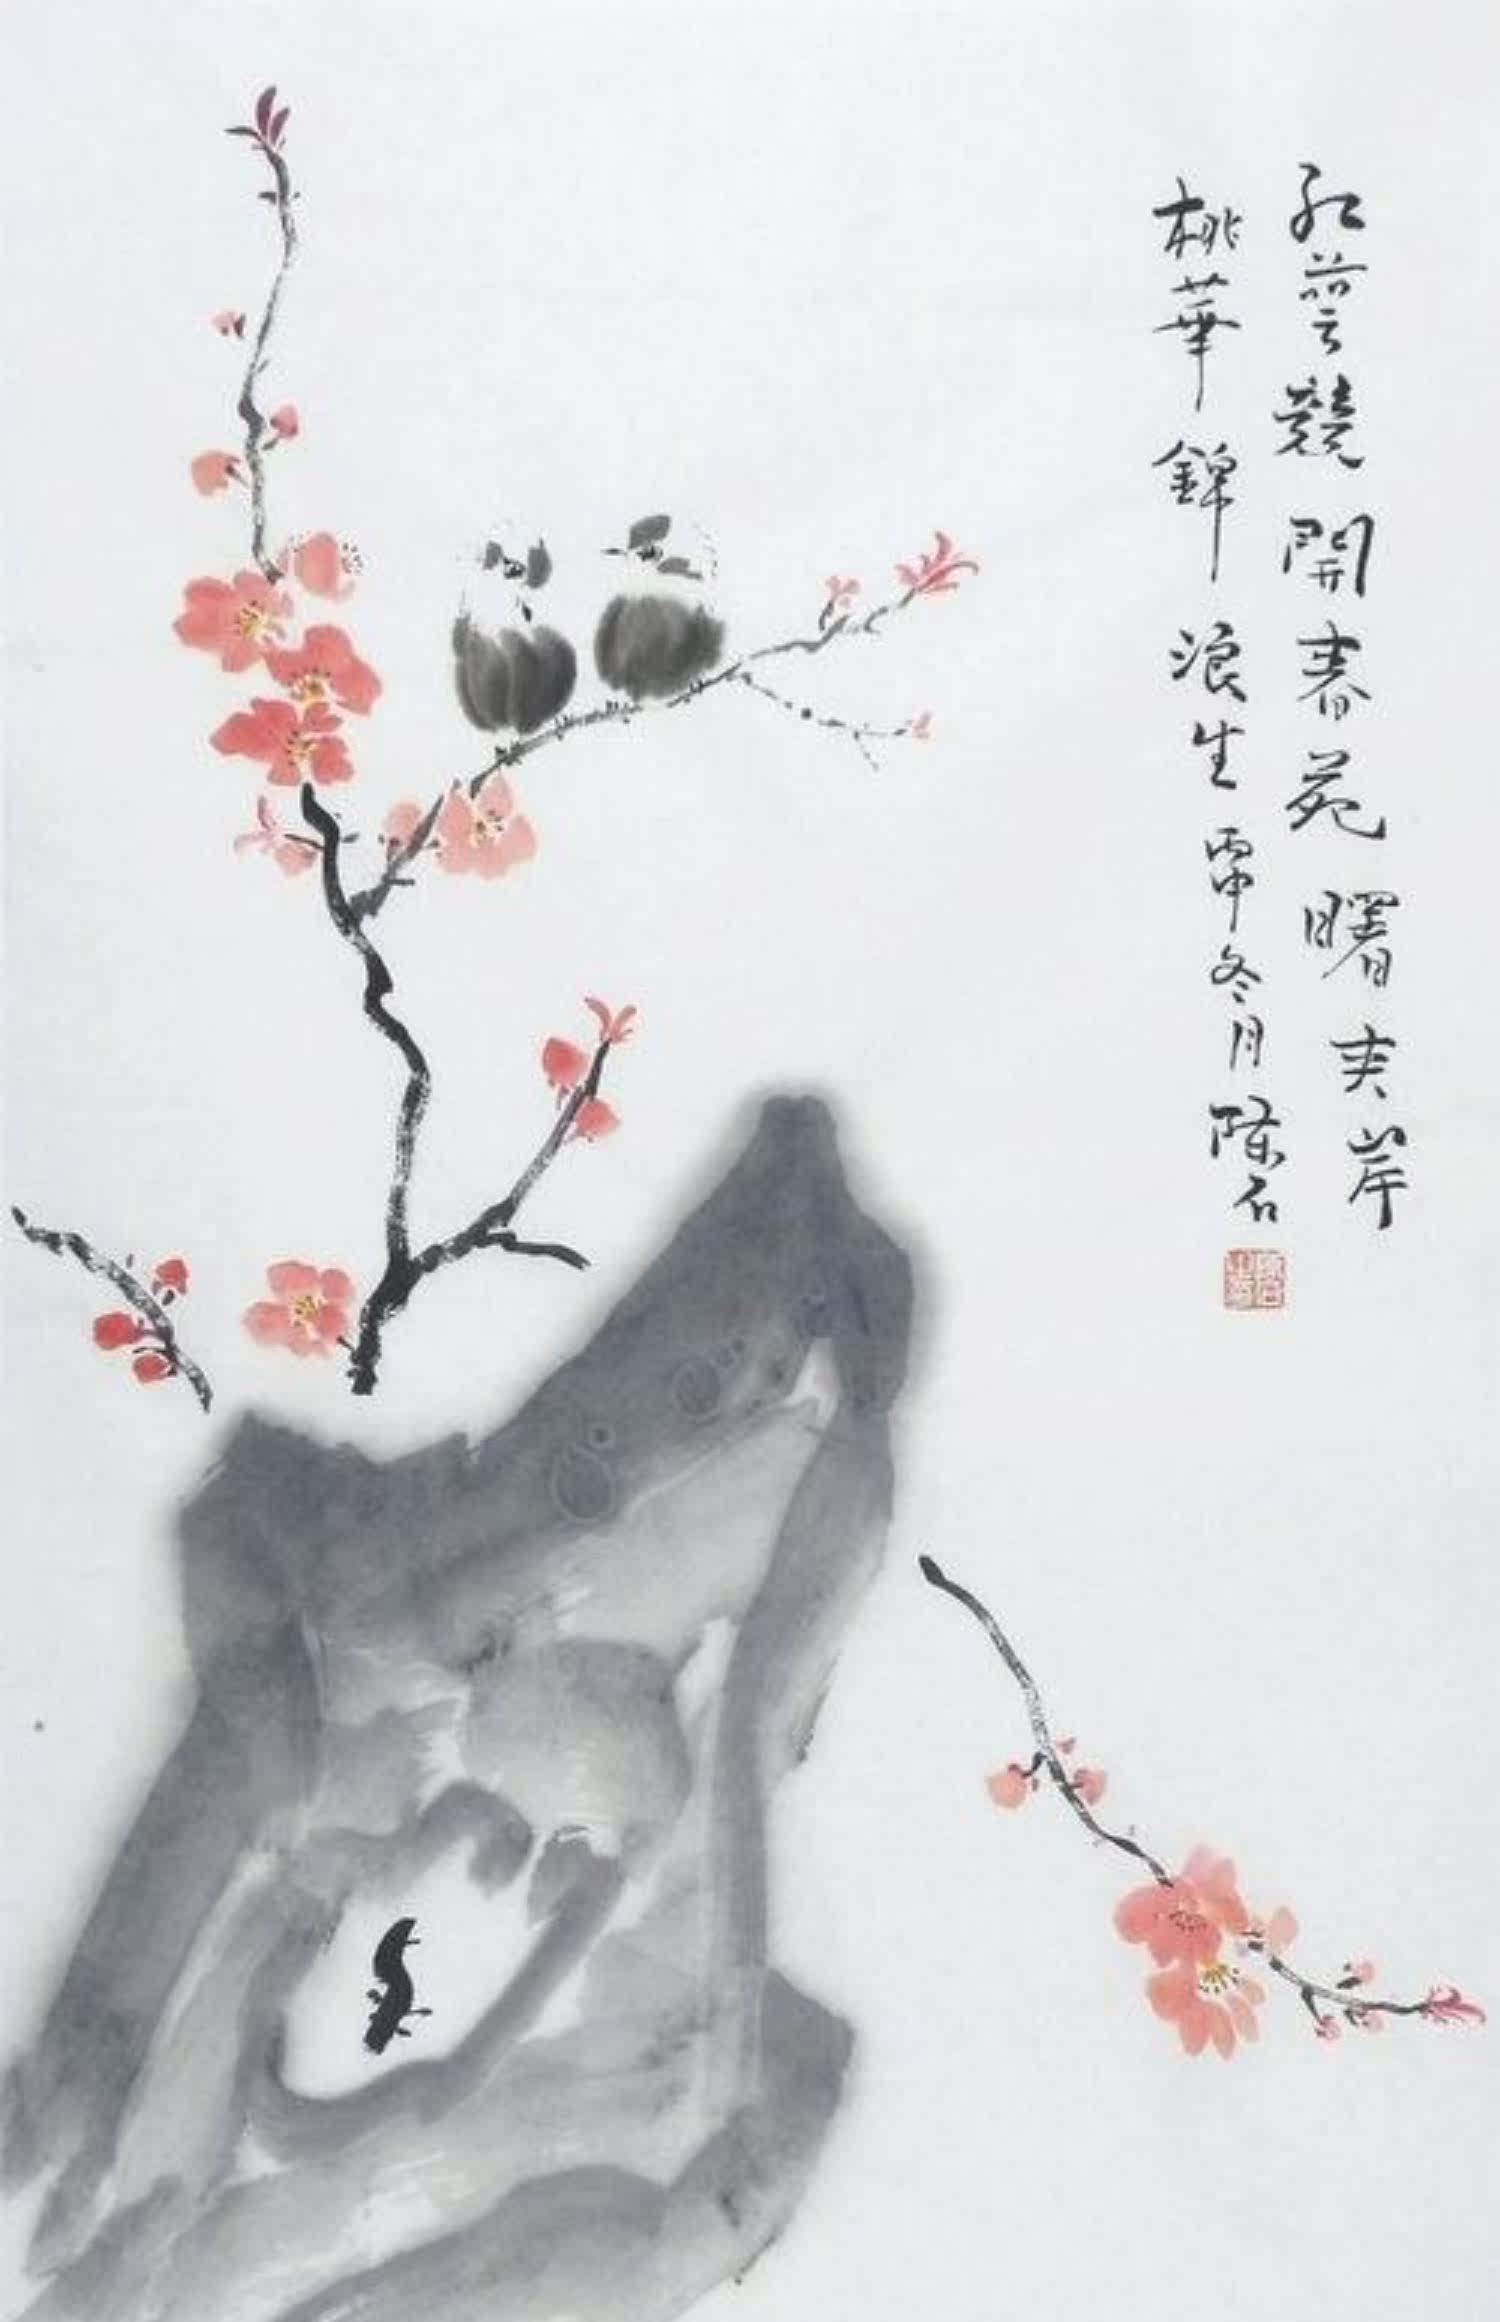 紅芸競開春苑曙夹岸
桃華錦浪生丙申冬月陈石